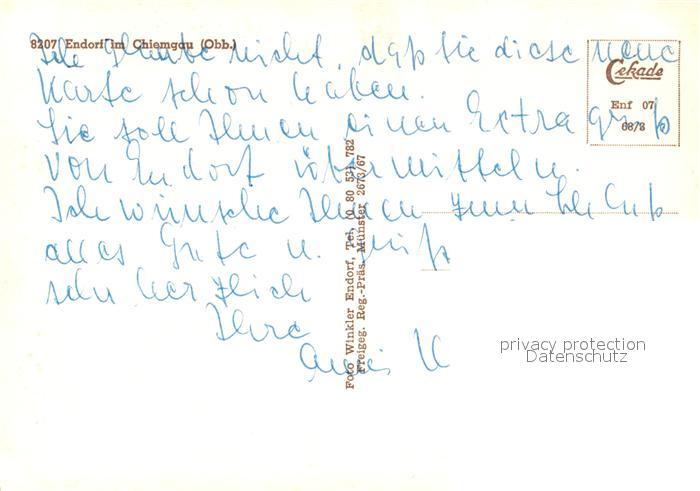 8207 Endorf im Chiemgau (Obb.)
Ich glaube nicht, daß Sie diese neue
Karte schon haben.
Sie soll Ihnen einen Extra gruß
von Endorf übermitteln.
Ich wünsche Ihnen zum Schluß
alles Gute u. grüße
sehr herzlich
Ihre
Cekade
Enf 07
Foto Winkler Endorf, Tel. (0 80 53)
Freigeg. Reg.-Präs. Münster 2673/67
privacy protection
Datenschutz